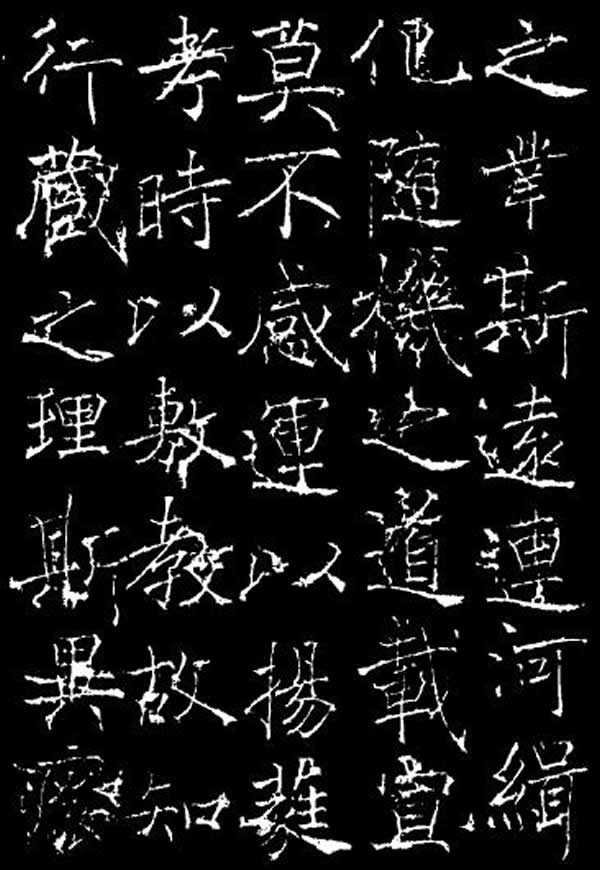 之業斯遠連河緝
化隨機之道載宣
莫不感運以揚蕤
考時以敷教故知
行藏之理斯異